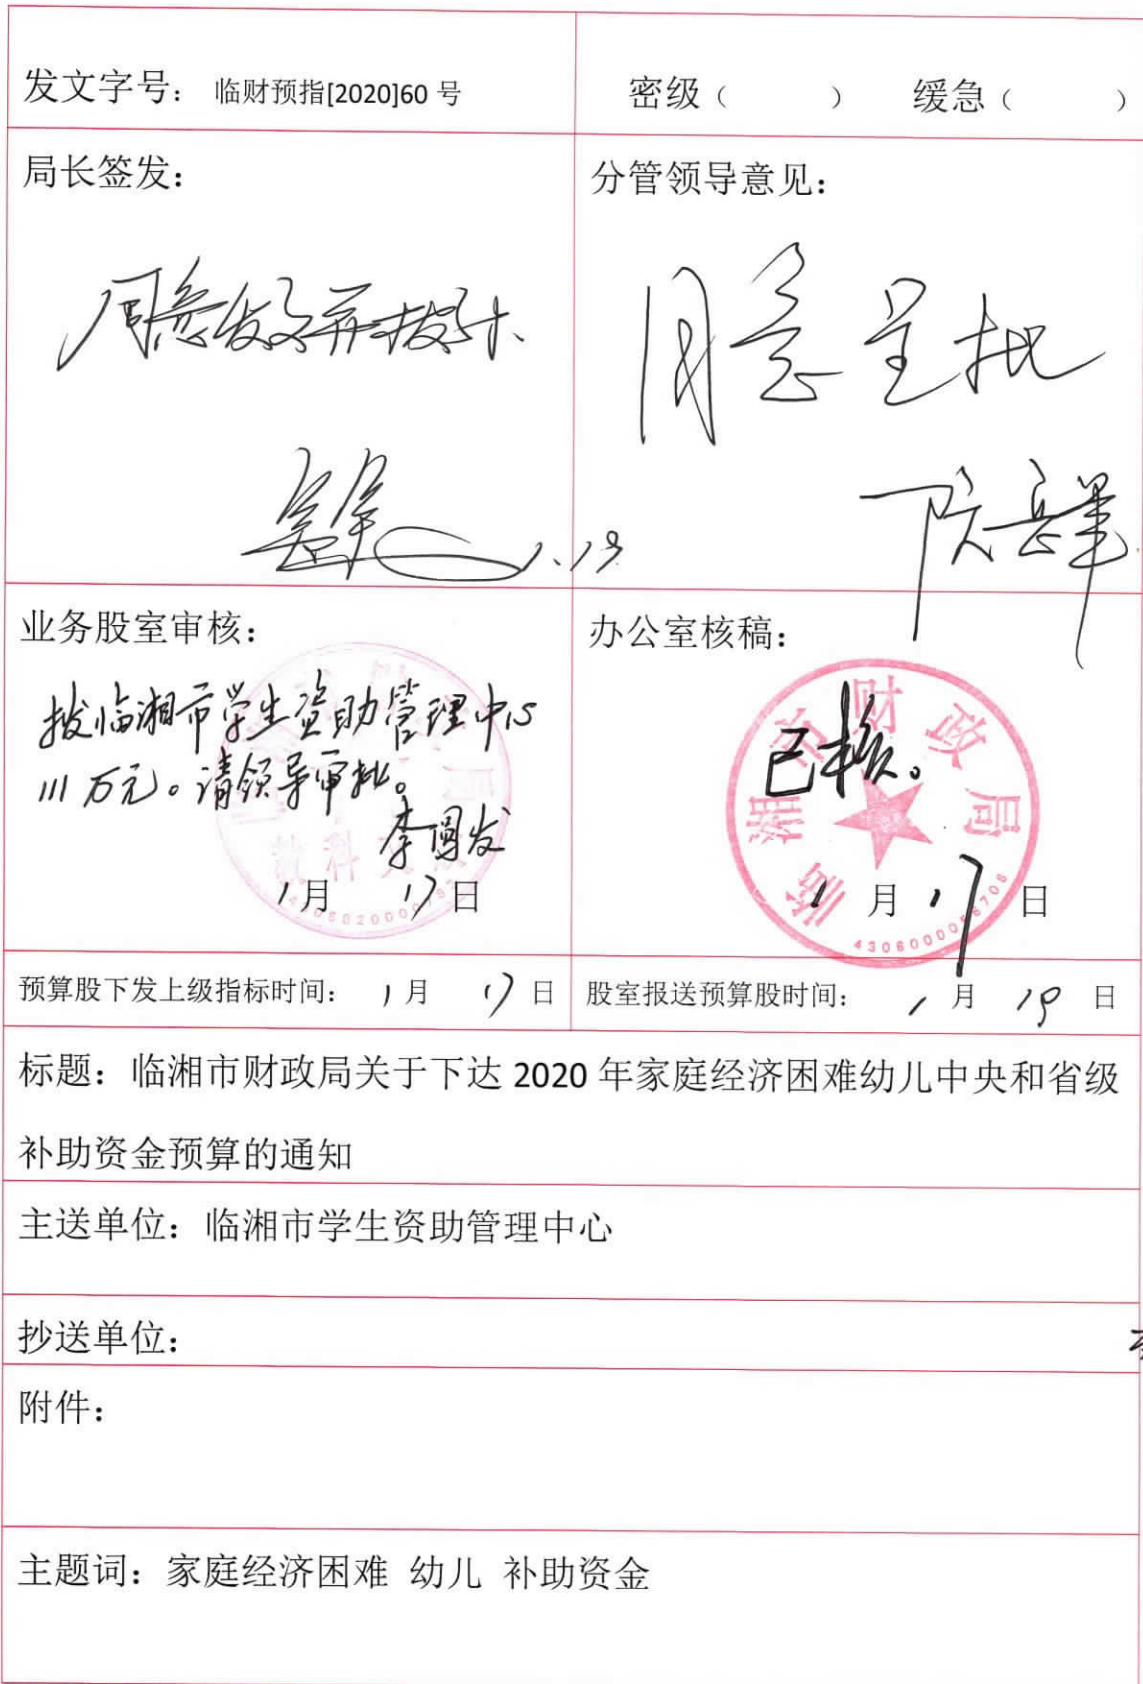 发文字号： 临财预指[2020]60 号
密级（ ） 缓急（ ）
局长签发：
同意发文并拨卡
1.19
分管领导意见：
同意呈批
业务股室审核：
拨临湘市学生资助管理中心
111万元。请领导审批。
1月 17日
办公室核稿：
已核。
临湘市财政局
1月 17日
预算股下发上级指标时间： 1月 17日
股室报送预算股时间： 1月 19日
标题：临湘市财政局关于下达 2020 年家庭经济困难幼儿中央和省级
补助资金预算的通知
主送单位：临湘市学生资助管理中心
抄送单位：
附件：
主题词：家庭经济困难 幼儿 补助资金